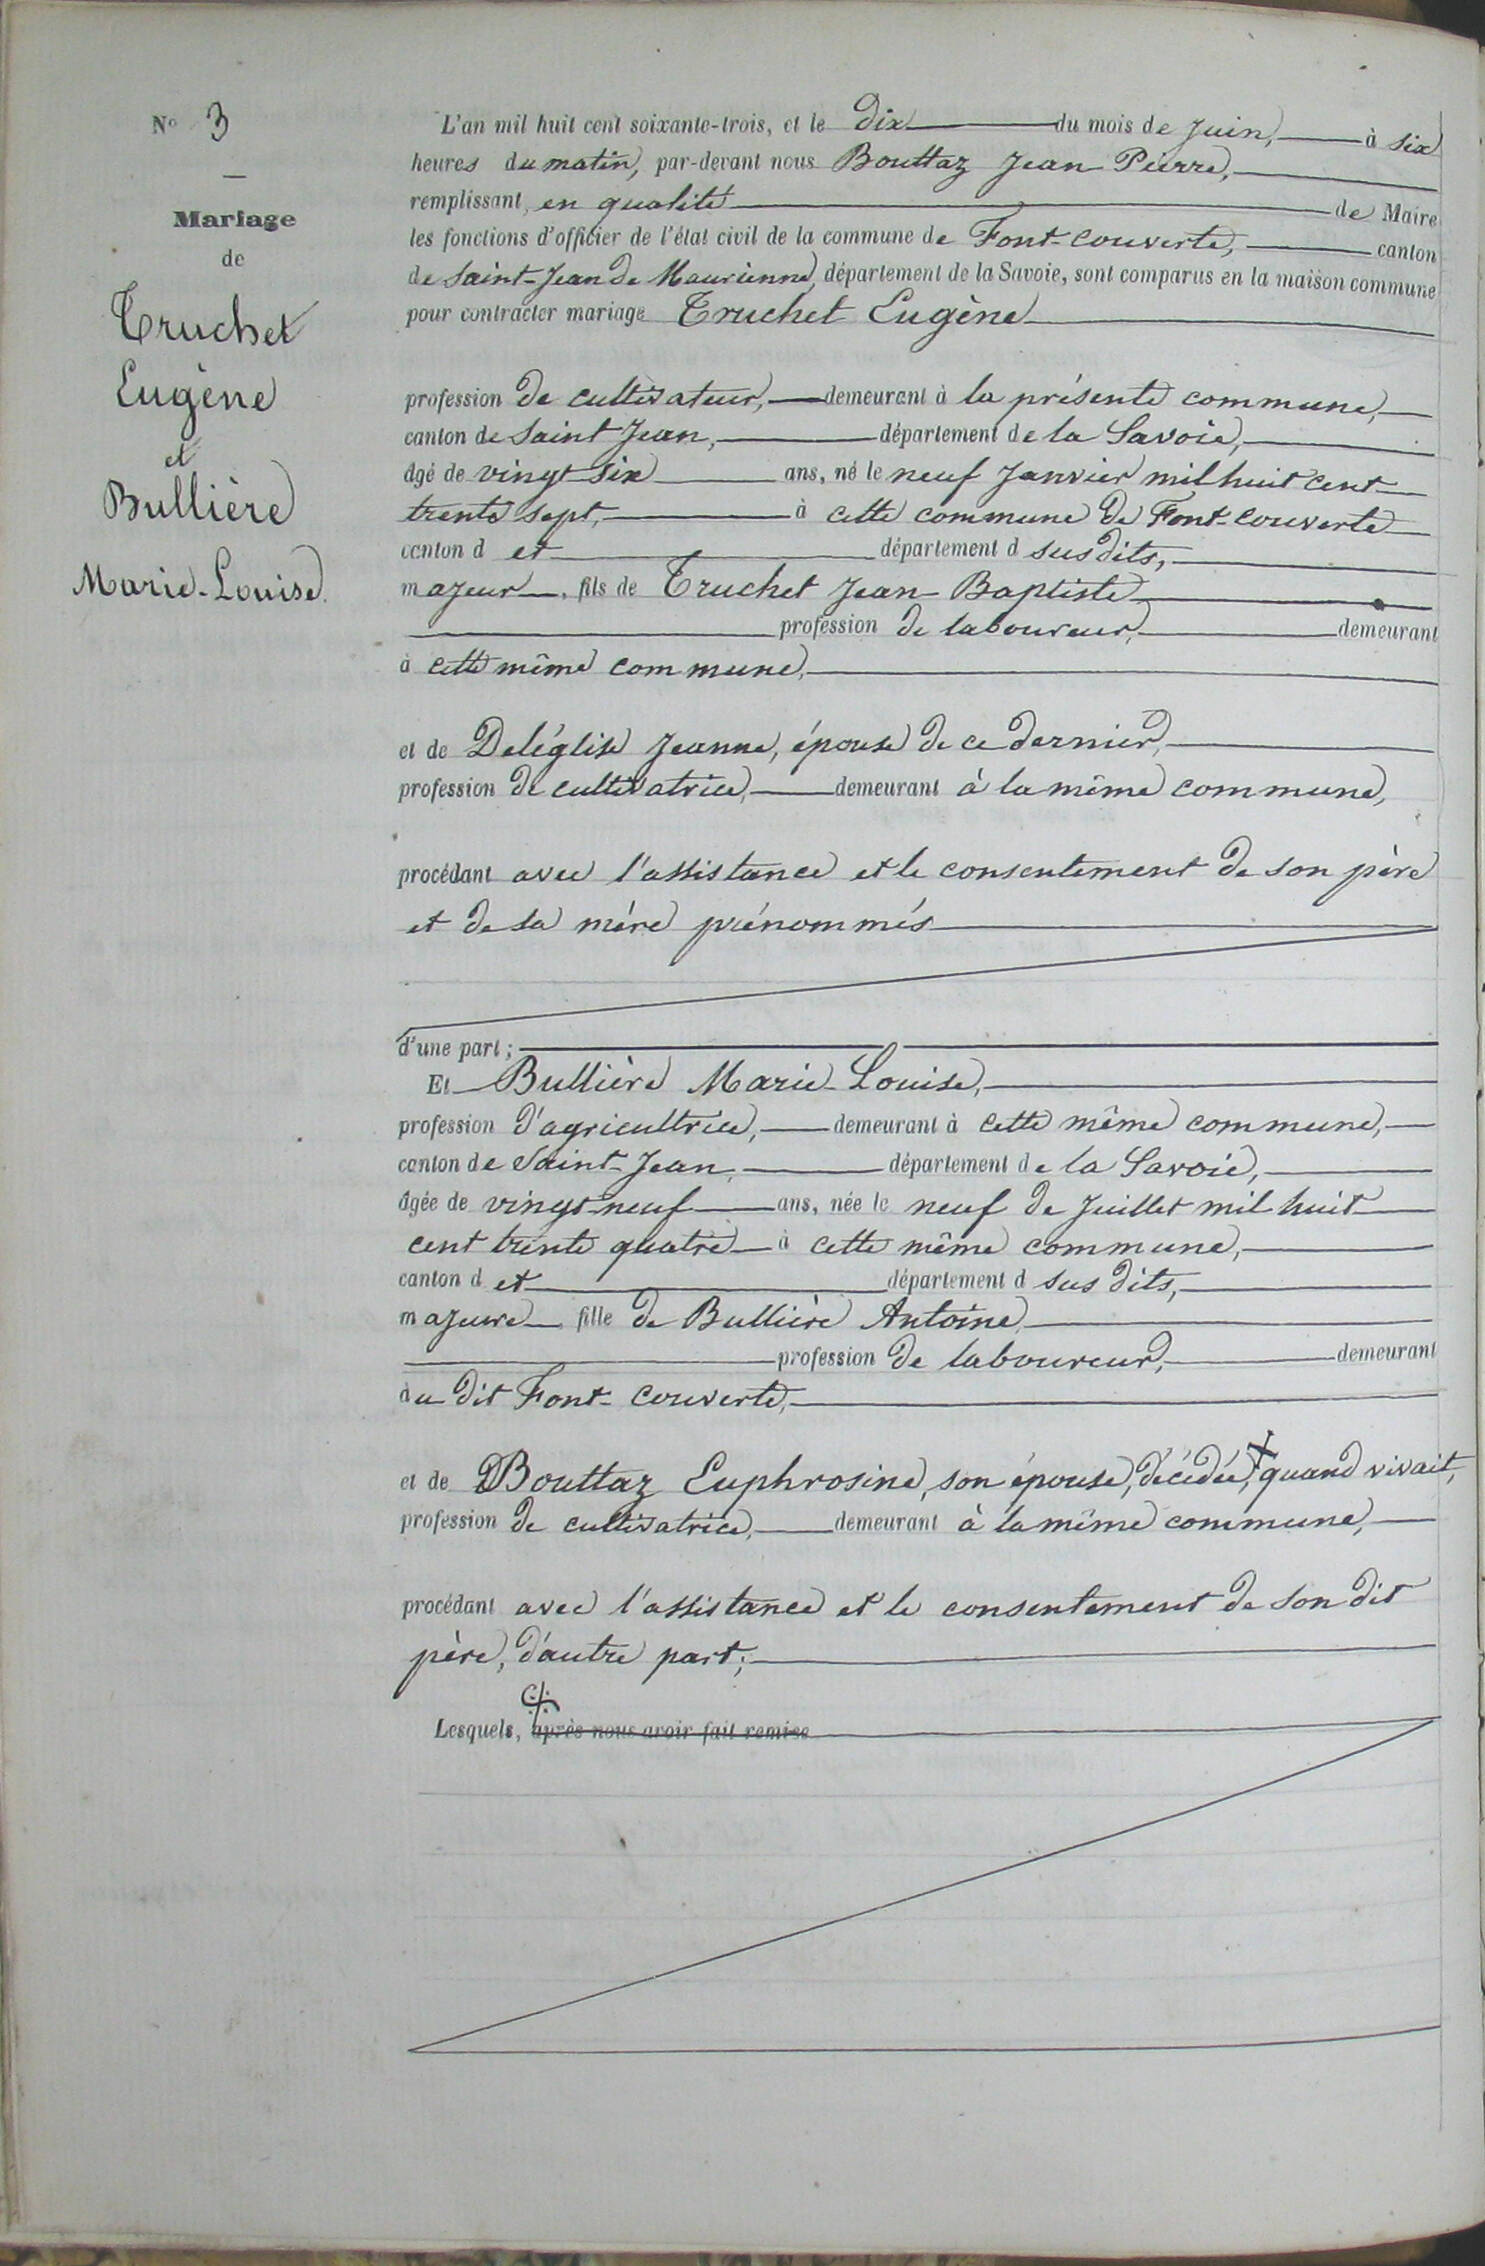 N° 3
Mariage
de
Truchet
Eugène
et
Bullière
Marie-Louise.
L'an mil huit cent soixante-trois, et le dix du mois de Juin, à six
heures du matin, par-devant nous Bouttaz Jean-Pierre,
remplissant, en qualité de Maire
les fonctions d'officier de l'état civil de la commune de Font-couverte, canton
de Saint-Jean de Maurienne, département de la Savoie, sont comparus en la maison commune
pour contracter mariage Truchet Eugène
profession de cultivateur, demeurant à la présente commune,
canton de Saint Jean, département de la Savoie,
âgé de vingt six ans, né le neuf Janvier mil huit cent
trente sept, à cette commune de Font-couverte
canton d et département d susdits,
majeur, fils de Truchet Jean-Baptiste
profession de laboureur, demeurant
à cette même commune,
et de Deléglise Jeanne, épouse de ce dernier,
profession de cultivatrice, demeurant à la même commune,
procédant avec l'assistance et le consentement de son père
et de sa mère prénommés
d'une part ;
Et Bullière Marie-Louise,
profession d'agricultrice, demeurant à cette même commune,
canton de Saint-Jean, département de la Savoie,
âgée de vingt-neuf ans, née le neuf de Juillet mil huit
cent trente quatre à cette même commune,
canton d et département d sus dits,
majeure, fille de Bullière Antoine,
profession de laboureur, demeurant
au dit Font-couverte,
et de Bouttaz Euphrosine, son épouse, décédée, quand vivait,
profession de cultivatrice, demeurant à la même commune,
procédant avec l'assistance et le consentement de son dit
père, d'autre part;
Lesquels, après nous avoir fait remise